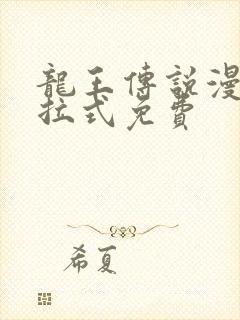 龍王傳說漫
拉式免費
希夏